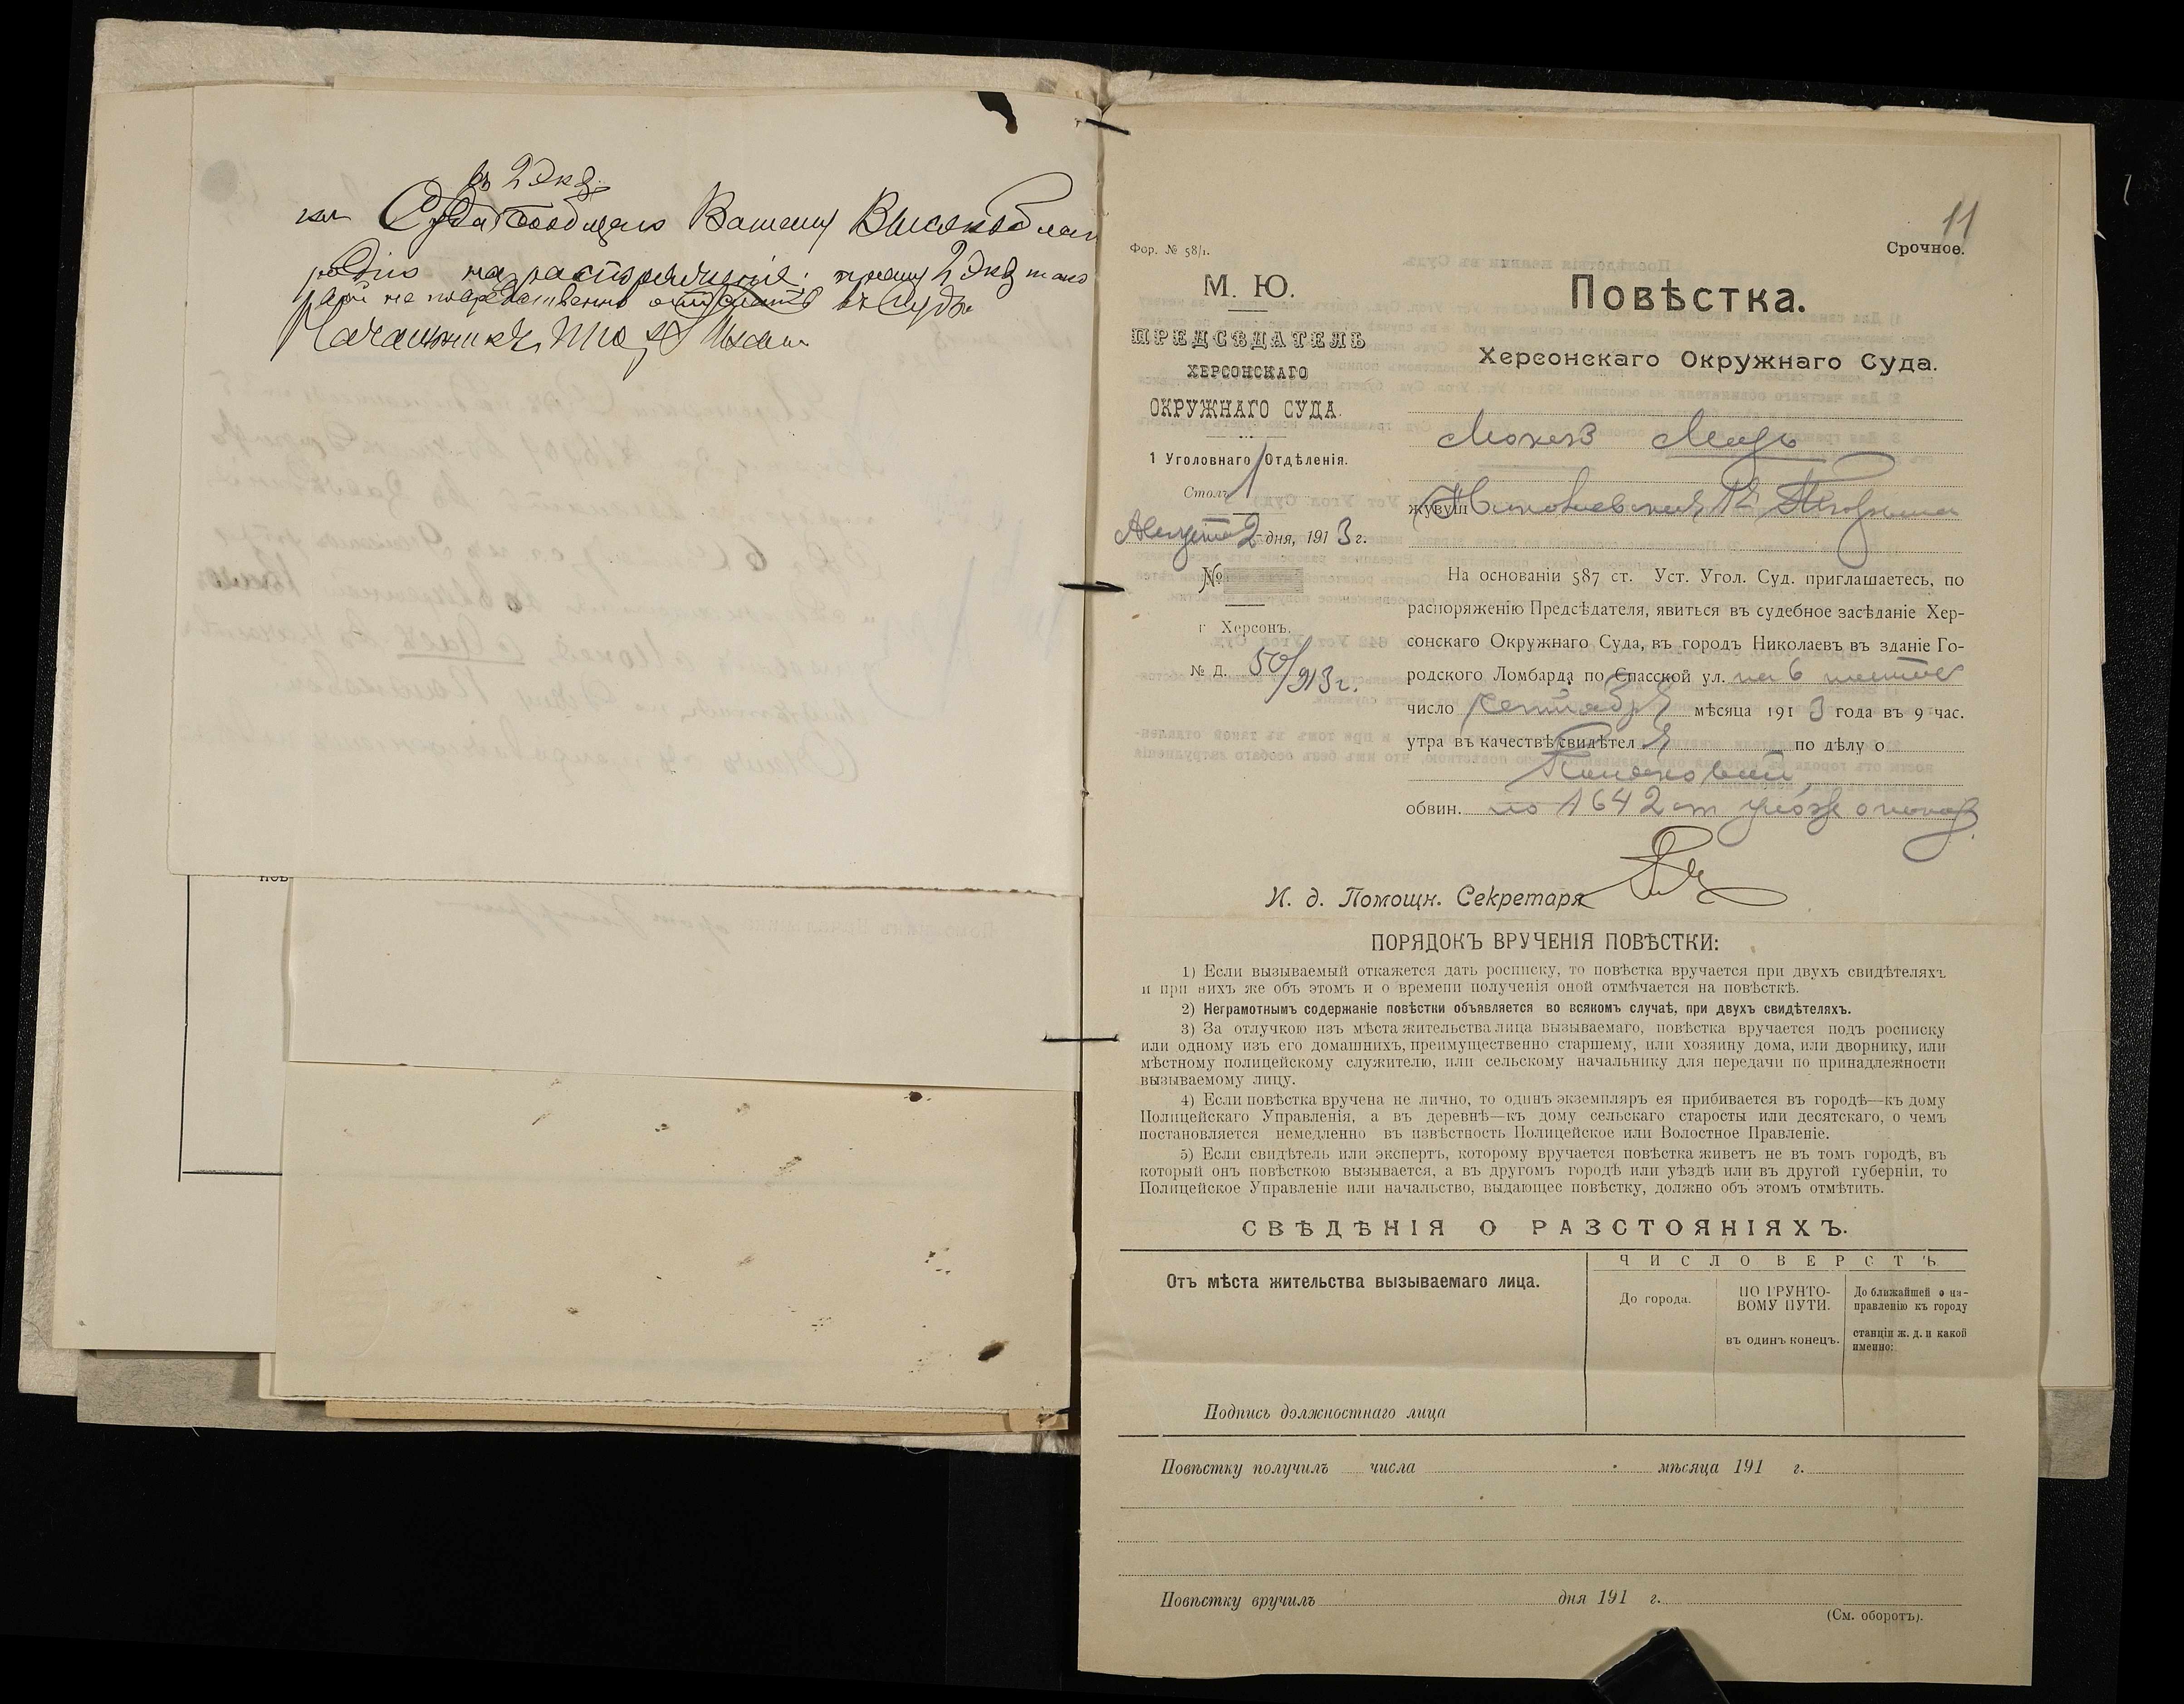 въ 2 экз.
Суда сообщаю Вашему Высокоблаго
родію на распоряженіе; прошу 2 экз
въ Судъ.
Начальникъ
11
Фор. № 58/1.
Срочное.
М. Ю.
ПРЕДСѢДАТЕЛЬ
ХЕРСОНСКАГО
ОКРУЖНАГО СУДА.
1 Уголовнаго Отдѣленія.
Столъ 1
Августа 2 дня, 1913 г.
№
г. Херсонъ.
№ Д. 50/913 г.
Повѣстка.
Херсонскаго Окружнаго Суда.
живущ
На основаніи 587 ст. Уст. Угол. Суд. приглашаетесь, по
распоряженію Предсѣдателя, явиться въ судебное засѣданіе Хер-
сонскаго Окружнаго Суда, въ городъ Николаевъ въ зданіе Го-
родского Ломбарда по Спасской ул. на 6 шестое
число сентября мѣсяца 1913 года въ 9 час.
утра въ качествѣ свидѣтеля по дѣлу о
обвин. по 1642 ст улож о наказ
И. д. Помощн. Секретаря
ПОРЯДОКЪ ВРУЧЕНІЯ ПОВѢСТКИ:
1) Если вызываемый откажется дать росписку, то повѣстка вручается при двухъ свидѣтеляхъ
и при нихъ же объ этомъ и о времени полученія оной отмѣчается на повѣсткѣ.
2) Неграмотнымъ содержаніе повѣстки объявляется во всякомъ случаѣ, при двухъ свидѣтеляхъ.
3) За отлучкою изъ мѣста жительства лица вызываемаго, повѣстка вручается подъ росписку
или одному изъ его домашнихъ, преимущественно старшему, или хозяину дома, или дворнику, или
мѣстному полицейскому служителю, или сельскому начальнику для передачи по принадлежности
вызываемому лицу.
4) Если повѣстка вручена не лично, то одинъ экземпляръ ея прибивается въ городѣ—къ дому
Полицейскаго Управленія, а въ деревнѣ—къ дому сельскаго старосты или десятскаго, о чемъ
постановляется немедленно въ извѣстность Полицейское или Волостное Правленіе.
5) Если свидѣтель или экспертъ, которому вручается повѣстка живетъ не въ томъ городѣ, въ
который онъ повѣсткою вызывается, а въ другомъ городѣ или уѣздѣ или въ другой губерніи, то
Полицейское Управленіе или начальство, выдающее повѣстку, должно объ этомъ отмѣтить.
СВѢДѢНІЯ О РАЗСТОЯНІЯХЪ.
Отъ мѣста жительства вызываемаго лица.
ЧИСЛО ВЕРСТЪ
До города.
ПО ГРУНТО-
ВОМУ ПУТИ.
въ одинъ конецъ.
До ближайшей о на-
правленію къ городу
станціи ж. д. и какой
именно:
Подпись должностнаго лица
Повѣстку получилъ числа мѣсяца 191 г.
Повѣстку вручилъ дня 191 г.
(См. оборотъ).